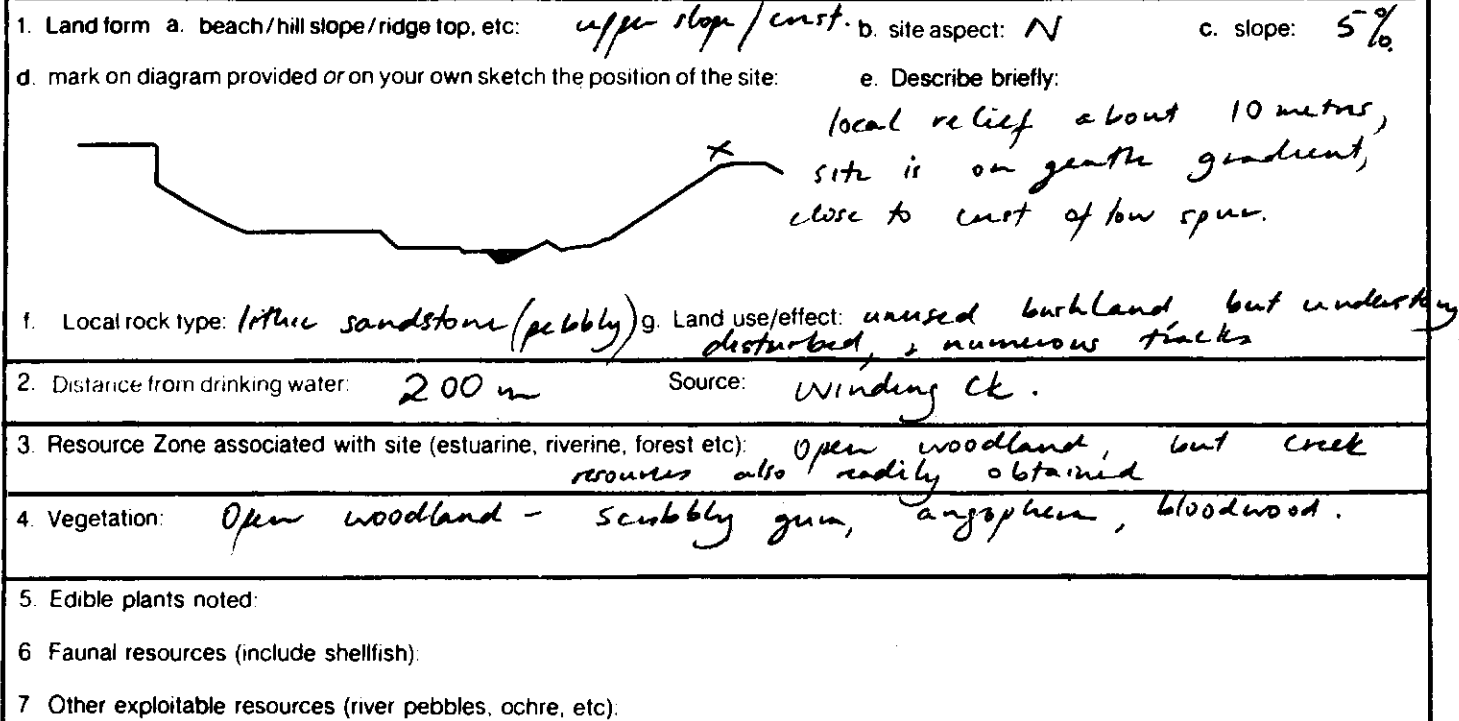 1. Land form a. beach/hill slope/ridge top, etc: upper slope / crest. b. site aspect: N c. slope: 5%
d. mark on diagram provided or on your own sketch the position of the site: e. Describe briefly:
local relief about 10 metres,
site is on gentle gradient,
close to crest of low spur.
X
f. Local rock type: lithic sandstone (pebbly) g. Land use/effect: unused bushland but understory
disturbed, numerous tracks
2. Distance from drinking water: 200 m Source: Winding Ck.
3. Resource Zone associated with site (estuarine, riverine, forest etc): Open woodland, but creek
resources also readily obtained
4. Vegetation: Open woodland - scribbly gum, angophera, bloodwood.
5. Edible plants noted:
6 Faunal resources (include shellfish):
7 Other exploitable resources (river pebbles, ochre, etc):